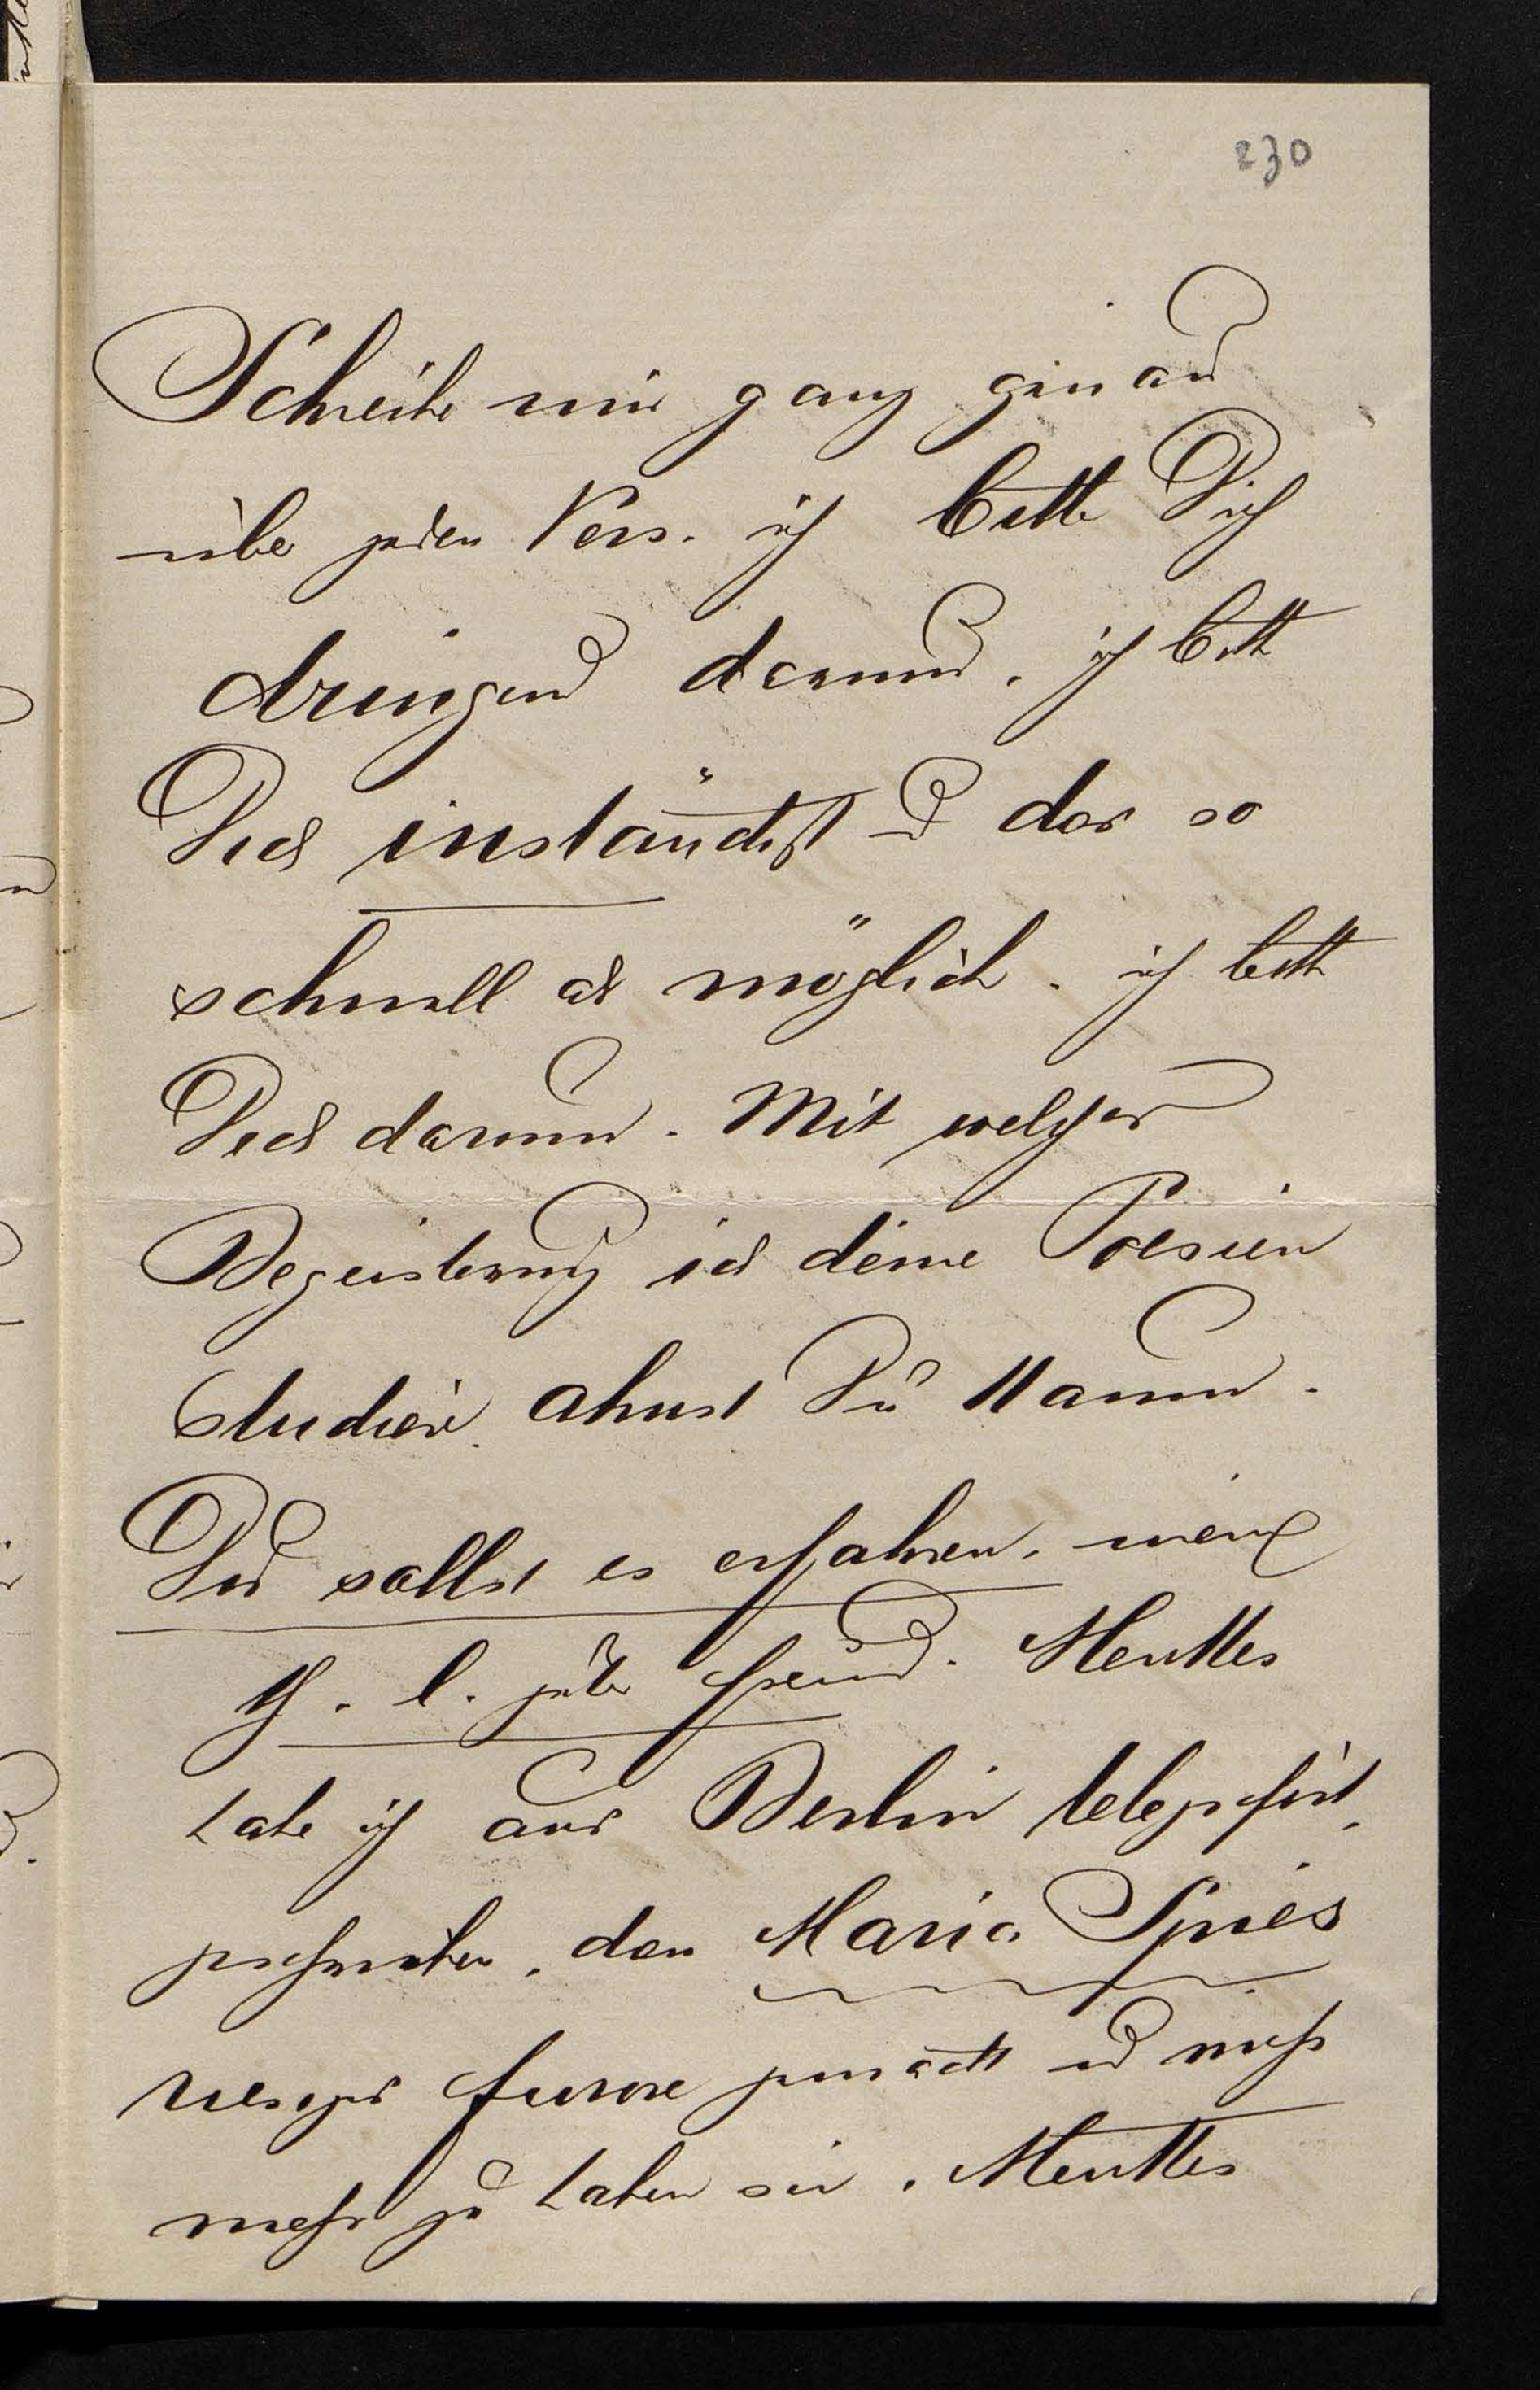 230
Schreibe mir ganz genau
über jeden Vers. ich bitte Dich
dringend darum. ich bitte
Dich inständigst u das so
schnell als möglich. ich bitte
Dich darum. Mit welcher
Begeisterung ich deine Poesien
studiere ahnst Du kaum.
Du sollst es erfahren. mein
h. l. guter Freund.
habe ich aus Berlin
geschrieben. den Maria Spies
furore gemacht und muß
mehr zu haben sein.